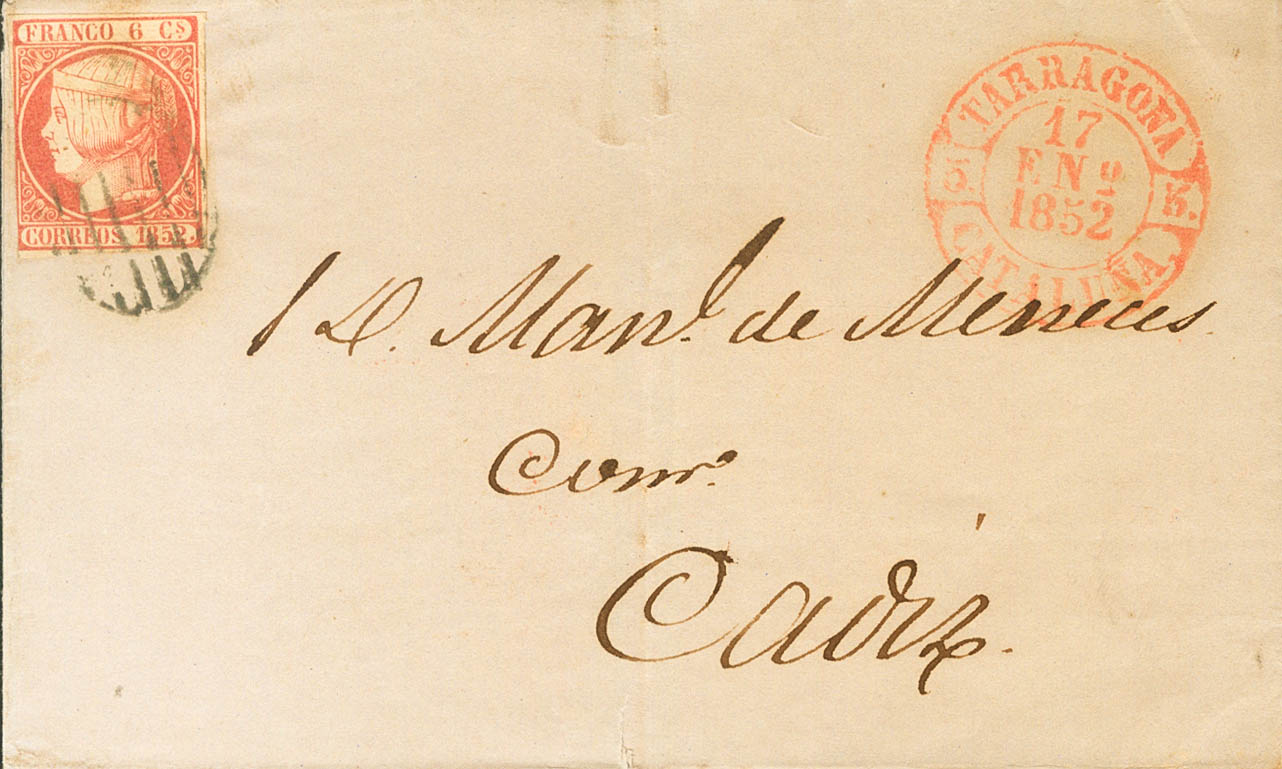 FRANCO 6 CS
CORREOS 1852.
TARRAGONA
17
ENº
1852
3. 3.
CATALUÑA.
D. Man.l de Meneces.
Com.o
Cadiz.